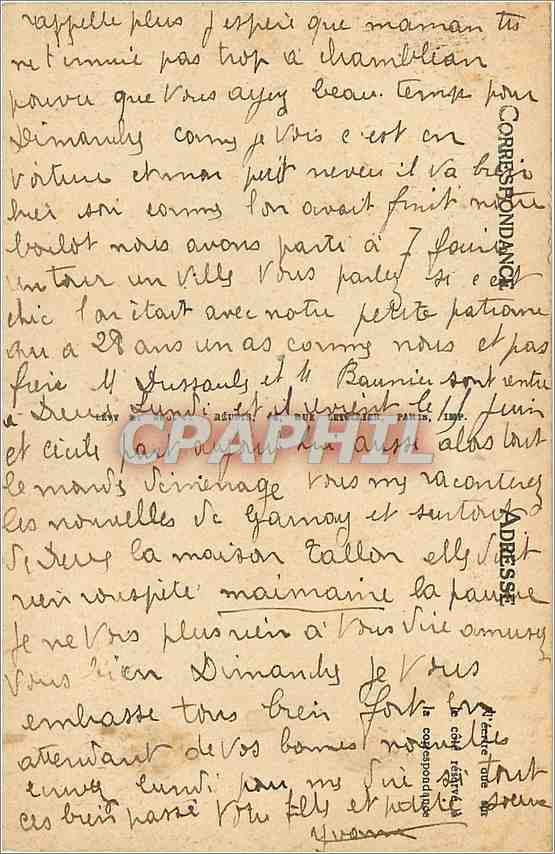 rappelle plus j espère que maman
ne t'ennuie pas trop a chamblian
pouvu que vous ayez beau temp pour
Dimanche comme je vois c'est en
voiture et mon petit neveu il va bien
hier soir comme l'on avait finit notre
boulot nous avons parti à 7 faire
un tour en ville vous parlez si c'est
chic l'on était avec notre petite patronne
qui a 28 ans un as comme nous et pas
fière M Dussauls et M Baumier sont rentré
à Dreux Lundi et le 11 Juin
et cicile aussi alas tout
le monde déménage vous me raconterez
les nouvelles de Garnay et surtout
de Dreux la maison Tallon elle doit
rien rouspété maimaine la pauvre
je ne vois plus rien à vous dire amusez
vous bien Dimanche je vous
embrasse tous bien fort en
attendant de vos bonnes nouvelles
lundi pour me dire si tout
ces bien passé votre fils et petite soeur
Yvonne
CORRESPONDANCE
ADRESSE
LEVY ET RÉUNIS, RUE LETELLIER, PARIS, IMP.
CPAPHIL
d'écrire que sur
le côté réservé à
la correspondance